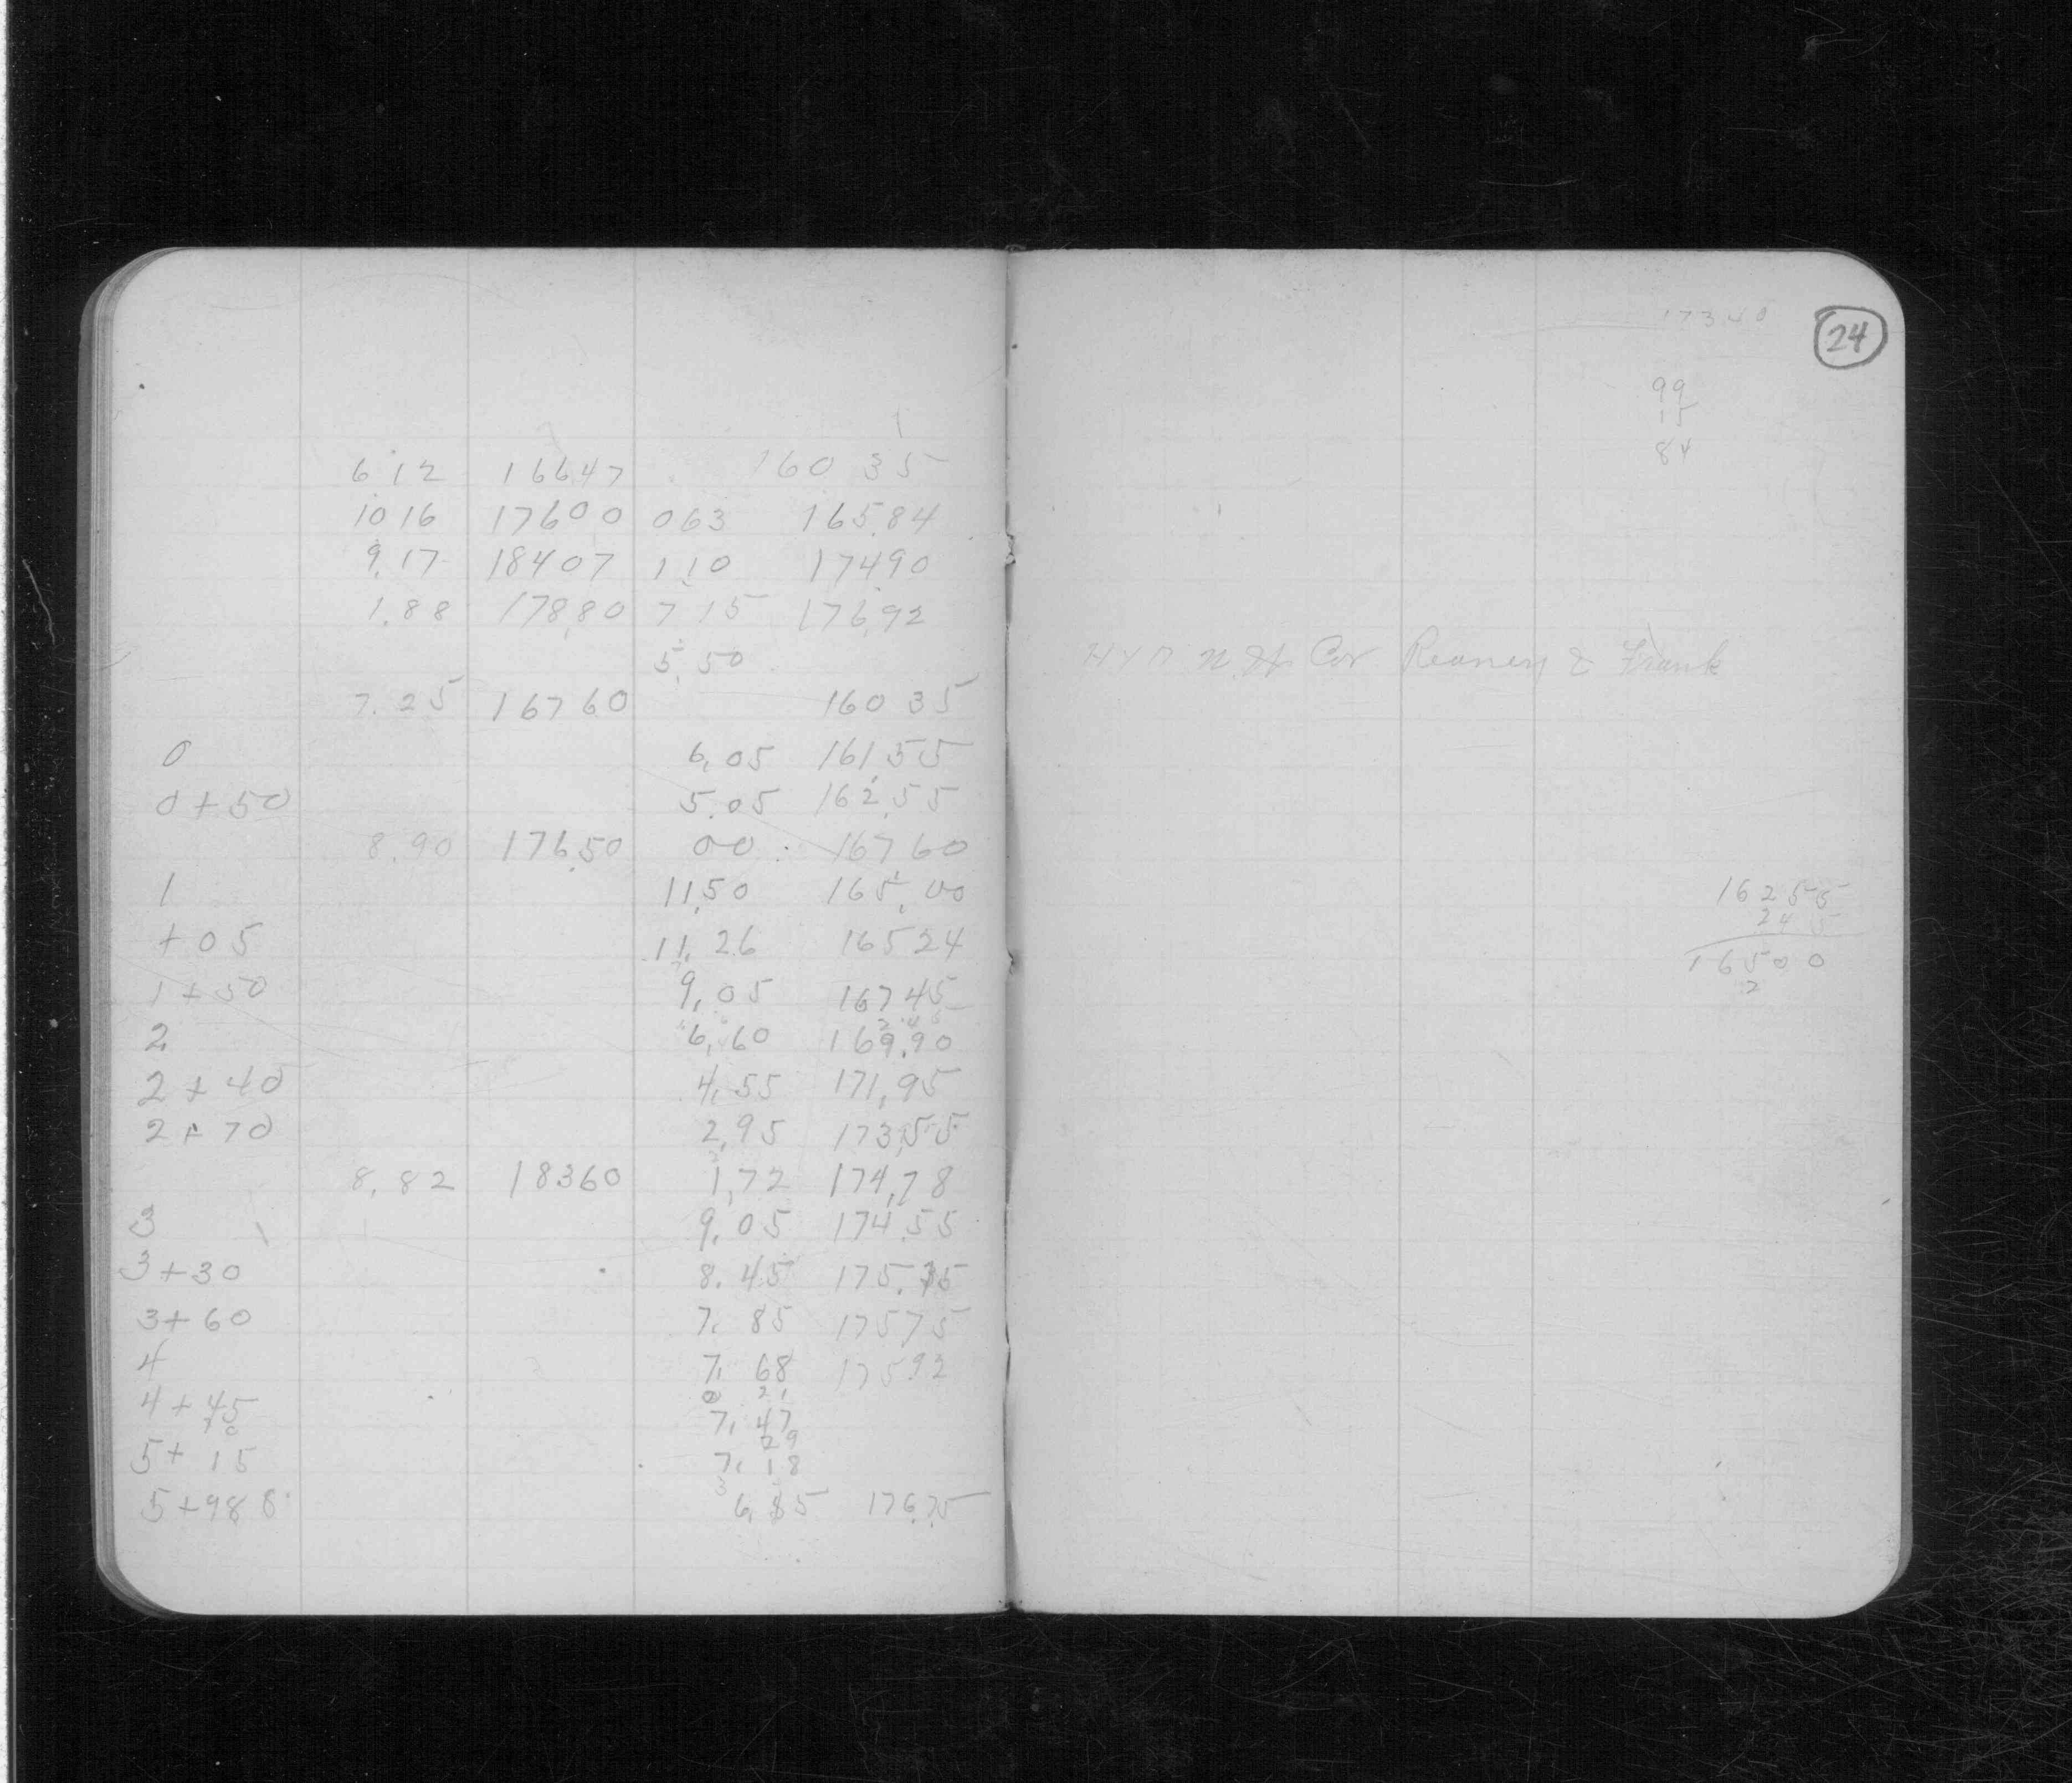 6 12 166 47 160 35
10 16 176 00 0 63 165.84
9.17 184 07 1.10 174 90
1.88 178.80 7 15 176.92
5.50
7.25 167 60 160 35
0 6.05 161 55
0+50 5.05 162.55
8.90 176.50 00 167 60
1 11.50 165.00
+05 11.26 165 24
1+50 9.05 167 45
2 6.60 169.90
2+40 4.55 171.95
2+70 2.95 173.55
8.82 183 60 1.72 174.78
3 9.05 174.55
3+30 8.45 175.15
3+60 7.85 175 75
4 7.68 175.92
21
4+45 7.47
29
5+15 7.18
5+988 6.85 176.75
173 40
24
99
15
84
HYD N.W Cor Reaney & Frank
162 55
2 4 5
165 0 0
2